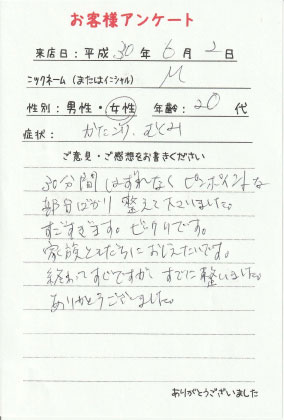 お客様アンケート
来店日：平成30年6月2日
ニックネーム（またはイニシャル） M
性別：男性・女性 年齢：20代
症状： かたこり、むくみ
ご意見・ご感想をお書きください
30分間はずれなくピンポイントな
部分ばかり整えて下さいました。
すごすぎます。ビックリです。
家族と友だちにおしえたいです。
終わってすぐですが、すでに整いました。
ありがとうございました。
ありがとうございました